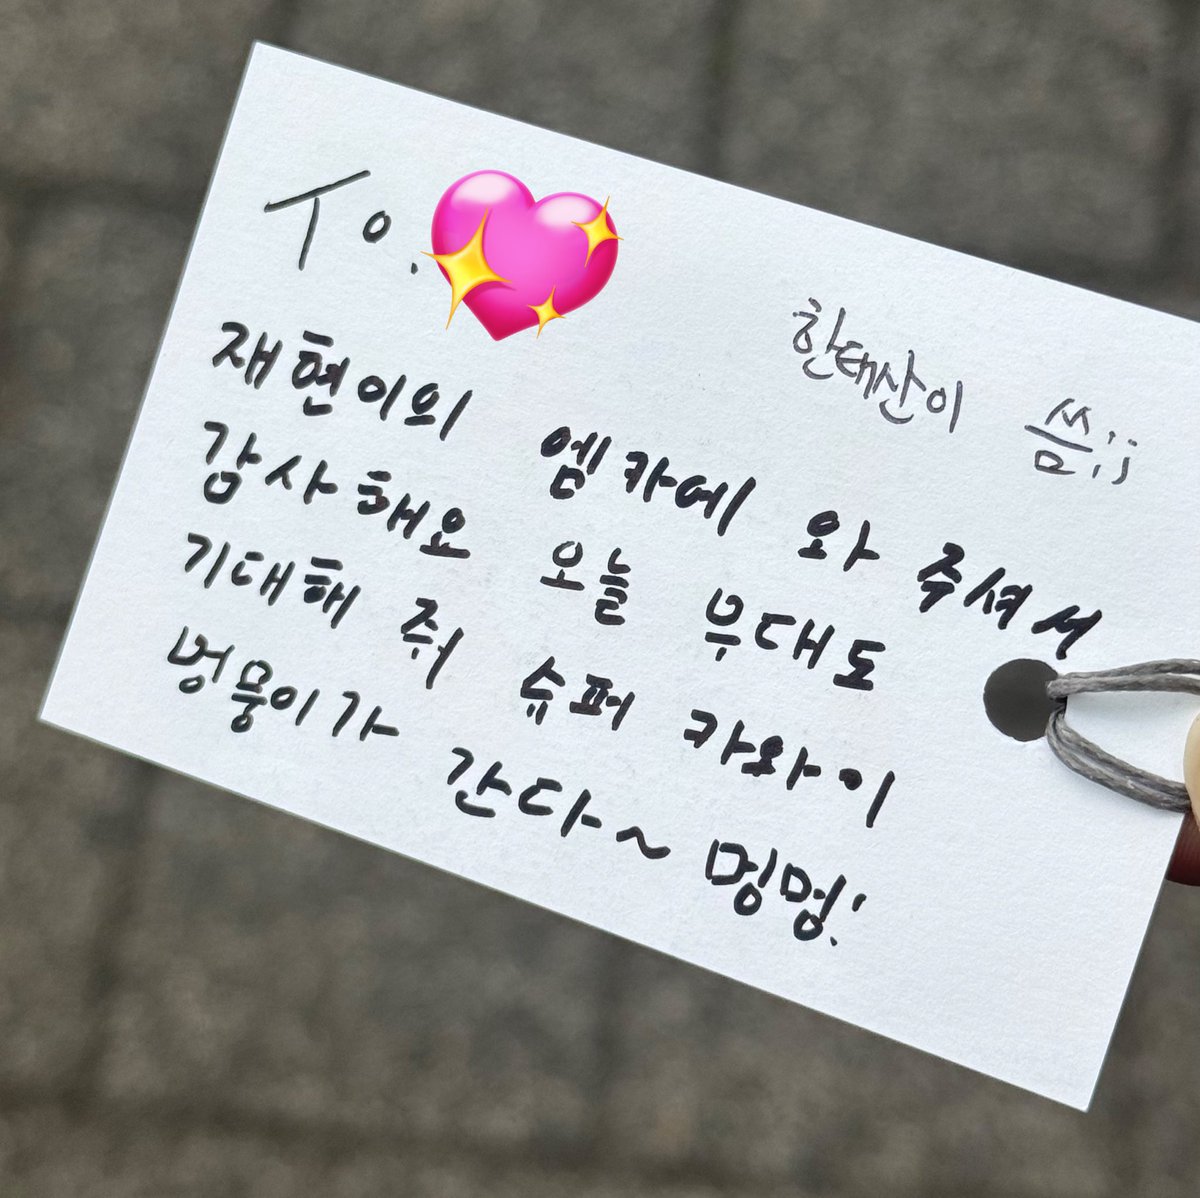 To.
한태산이 씀;;
재현이의 엠카에 와 주셔서
감사해요 오늘 무대도
기대해 줘 슈퍼 카와이
멍뭉이가 간다~ 멍멍!